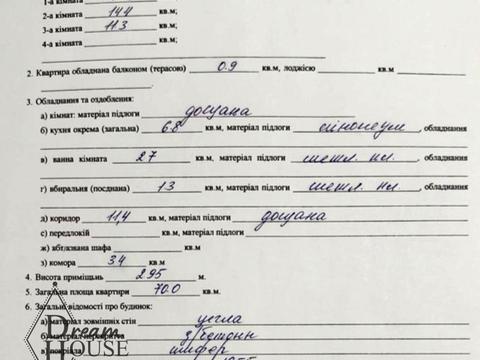 1-а кімната кв.м;
2-а кімната 14.4 кв.м;
3-а кімната 11.3 кв.м;
4-а кімната кв.м;
2. Квартира обладнана балконом (терасою) 0.9 кв.м, лоджією кв.м
3. Обладнання та оздоблення:
а) кімнат: матеріал підлоги дощана
б) кухня окрема (загальна) 6.8 кв.м, матеріал підлоги лінолеум, обладнання
в) ванна кімната 2.7 кв.м, матеріал підлоги метл. пл. обладнання
г) вбиральня (поєднана) 1.3 кв.м, матеріал підлоги метл. пл. обладнання
д) коридор 11,4 кв.м, матеріал підлоги дощана
є) передпокій кв.м, матеріал підлоги
ж) вбудована шафа кв.м
з) комора 3.4 кв.м
4. Висота приміщень 2.95 м.
5. Загальна площа квартири 70.0 кв.м.
6. Загальні відомості про будинок:
а) матеріал зовнішніх стін цегла
б) матеріал перекриття з/бетонн
в) покрівля шифер
Dream
HOUSE